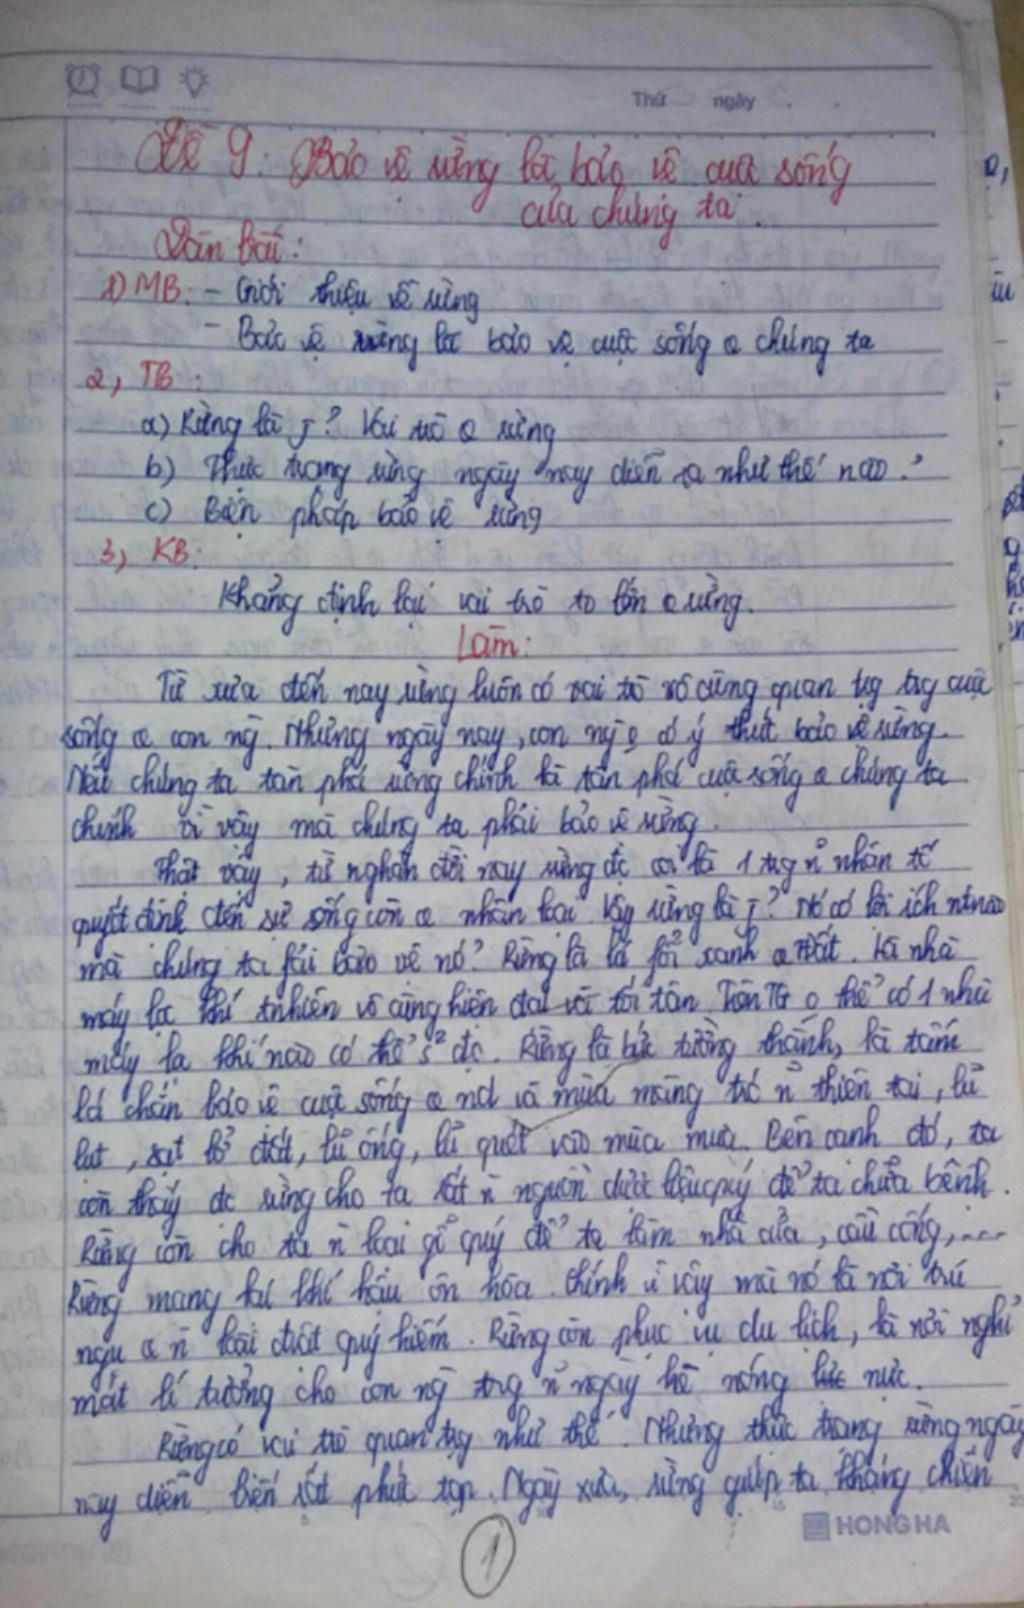 Thứ ngày
Đề 9: Bảo vệ rừng là bảo vệ cuộc sống
của chúng ta.
Dàn bài:
1) MB: - Giới thiệu về rừng
- Bảo vệ rừng là bảo vệ cuộc sống a chúng ta
2, TB:
a) Rừng là j? Vai trò a rừng
b) Thực trạng rừng ngày nay diễn ra như thế nào?
c) Biện pháp bảo vệ rừng
3, KB:
Khẳng định lại vai trò to lớn a rừng.
Làm:
Từ xưa đến nay rừng luôn có vai trò vô cùng quan tṛg trg cuộc
sống a con ng̀. Nhưng ngày nay, con ng̀ o có ý thức bảo vệ rừng.
Nếu chúng ta tàn phá rừng chính là tàn phá cuộc sống a chúng ta
chính vì vậy mà chúng ta phải bảo vệ rừng.
Thật vậy, từ nghàn đời nay rừng đc coi là 1 trg n~ nhân tố
quyết định đến sự sống còn a nhân loại. Vậy rừng là j? Nó có lợi ích ntnào
mà chúng ta fải bảo vệ nó? Rừng là lá fổi xanh a TĐất. Là nhà
máy lọc khí tnhiên vô cùng hiện đại và tối tân. Trên TG o thể có 1 nhà
máy lọc khí nào có thể s² đc. Rừng là bức tường thành, là tấm
lá chắn bảo vệ cuộc sống a nd và mùa màng trc n~ thiên tai, lũ
lụt, sạt lở đất, lũ ống, lũ quét vào mùa mưa. Bên cạnh đó, ta
còn thấy đc rừng cho ta rất n` nguồn dược liệu quý để ta chữa bệnh.
Rừng còn cho ta n` loại gỗ quý để ta làm nhà cửa, cầu cống,....
Rừng mang lại khí hậu ôn hòa. Chính vì vậy mà nó là nơi trú
ngụ a n` loài đvật quý hiếm. Rừng còn phục vụ du lịch, là nơi nghỉ
mát lí tưởng cho con ng̀ trg n~ ngày hè nóng nực.
Rừng có vai trò quan tṛg như thế. Nhưng thực trạng rừng ngày
nay diễn biến rất phức tạp. Ngày xưa, rừng giúp ta kháng chiến
HONG HA
1